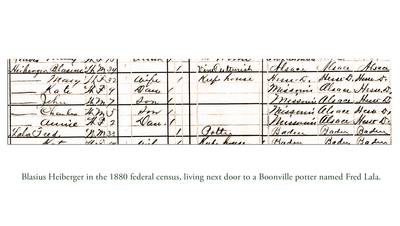 Heiberger Blasius W M 34 1 Alsace Alsace Alsace
— Mary W F 32 Wife 1 Keep house Hesse D. Hesse D. Hesse D.
— Kate W F 9 Dau Missouri Alsace Hesse D.
— John W M 7 Son Missouri Alsace Hesse D.
— Charles W M 5 Son Missouri Alsace Hesse D.
— Annie W F 2 Dau Missouri Alsace Hesse D.
Lala Fred W M 33 1 Potter Baden Baden Baden
Wife Keep house 1 Baden Baden Baden
Blasius Heiberger in the 1880 federal census, living next door to a Boonville potter named Fred Lala.